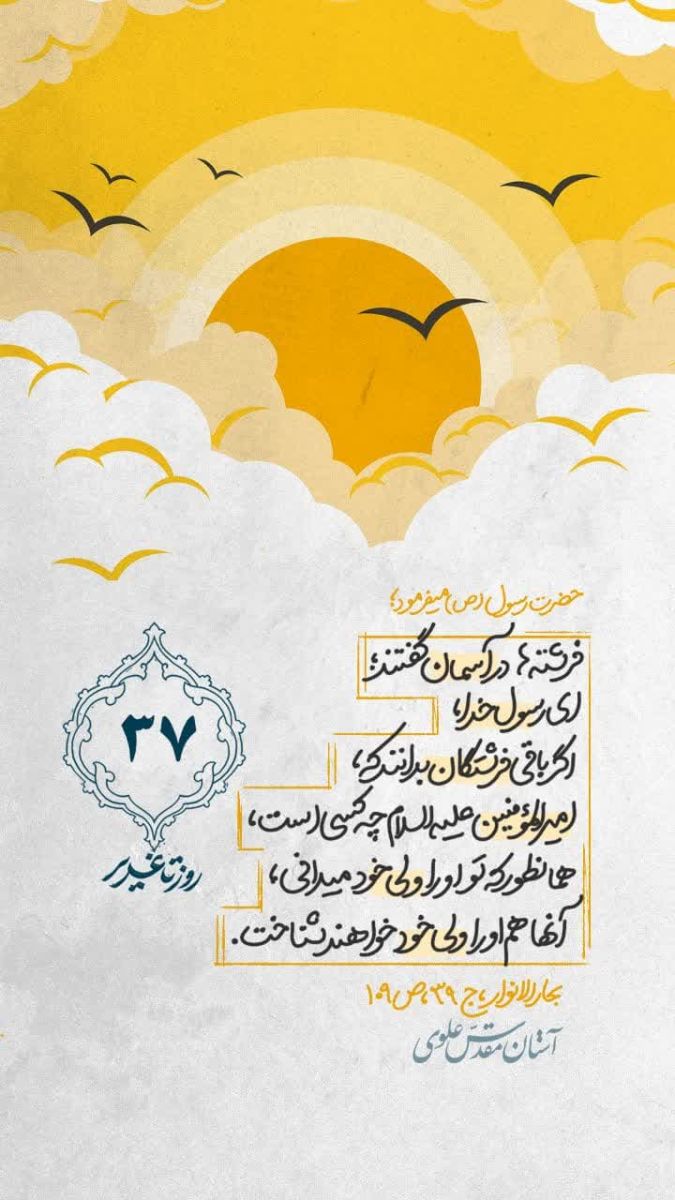 حضرت رسول (ص) میفرمود؛
فرشته‌ها در آسمان گفتند؛
ای رسول خدا،
اگر باقی فرشتگان بدانند که،
امیرالمؤمنین علیه السلام چه کسی است،
همانطور که تو او را ولی خود میدانی،
آنها هم او را ولی خود خواهند شناخت.
بحارالانوار، ج ۳۹، ص ۱۰۹
آستان مقدّس علوی
۳۷
روز تا غدیر